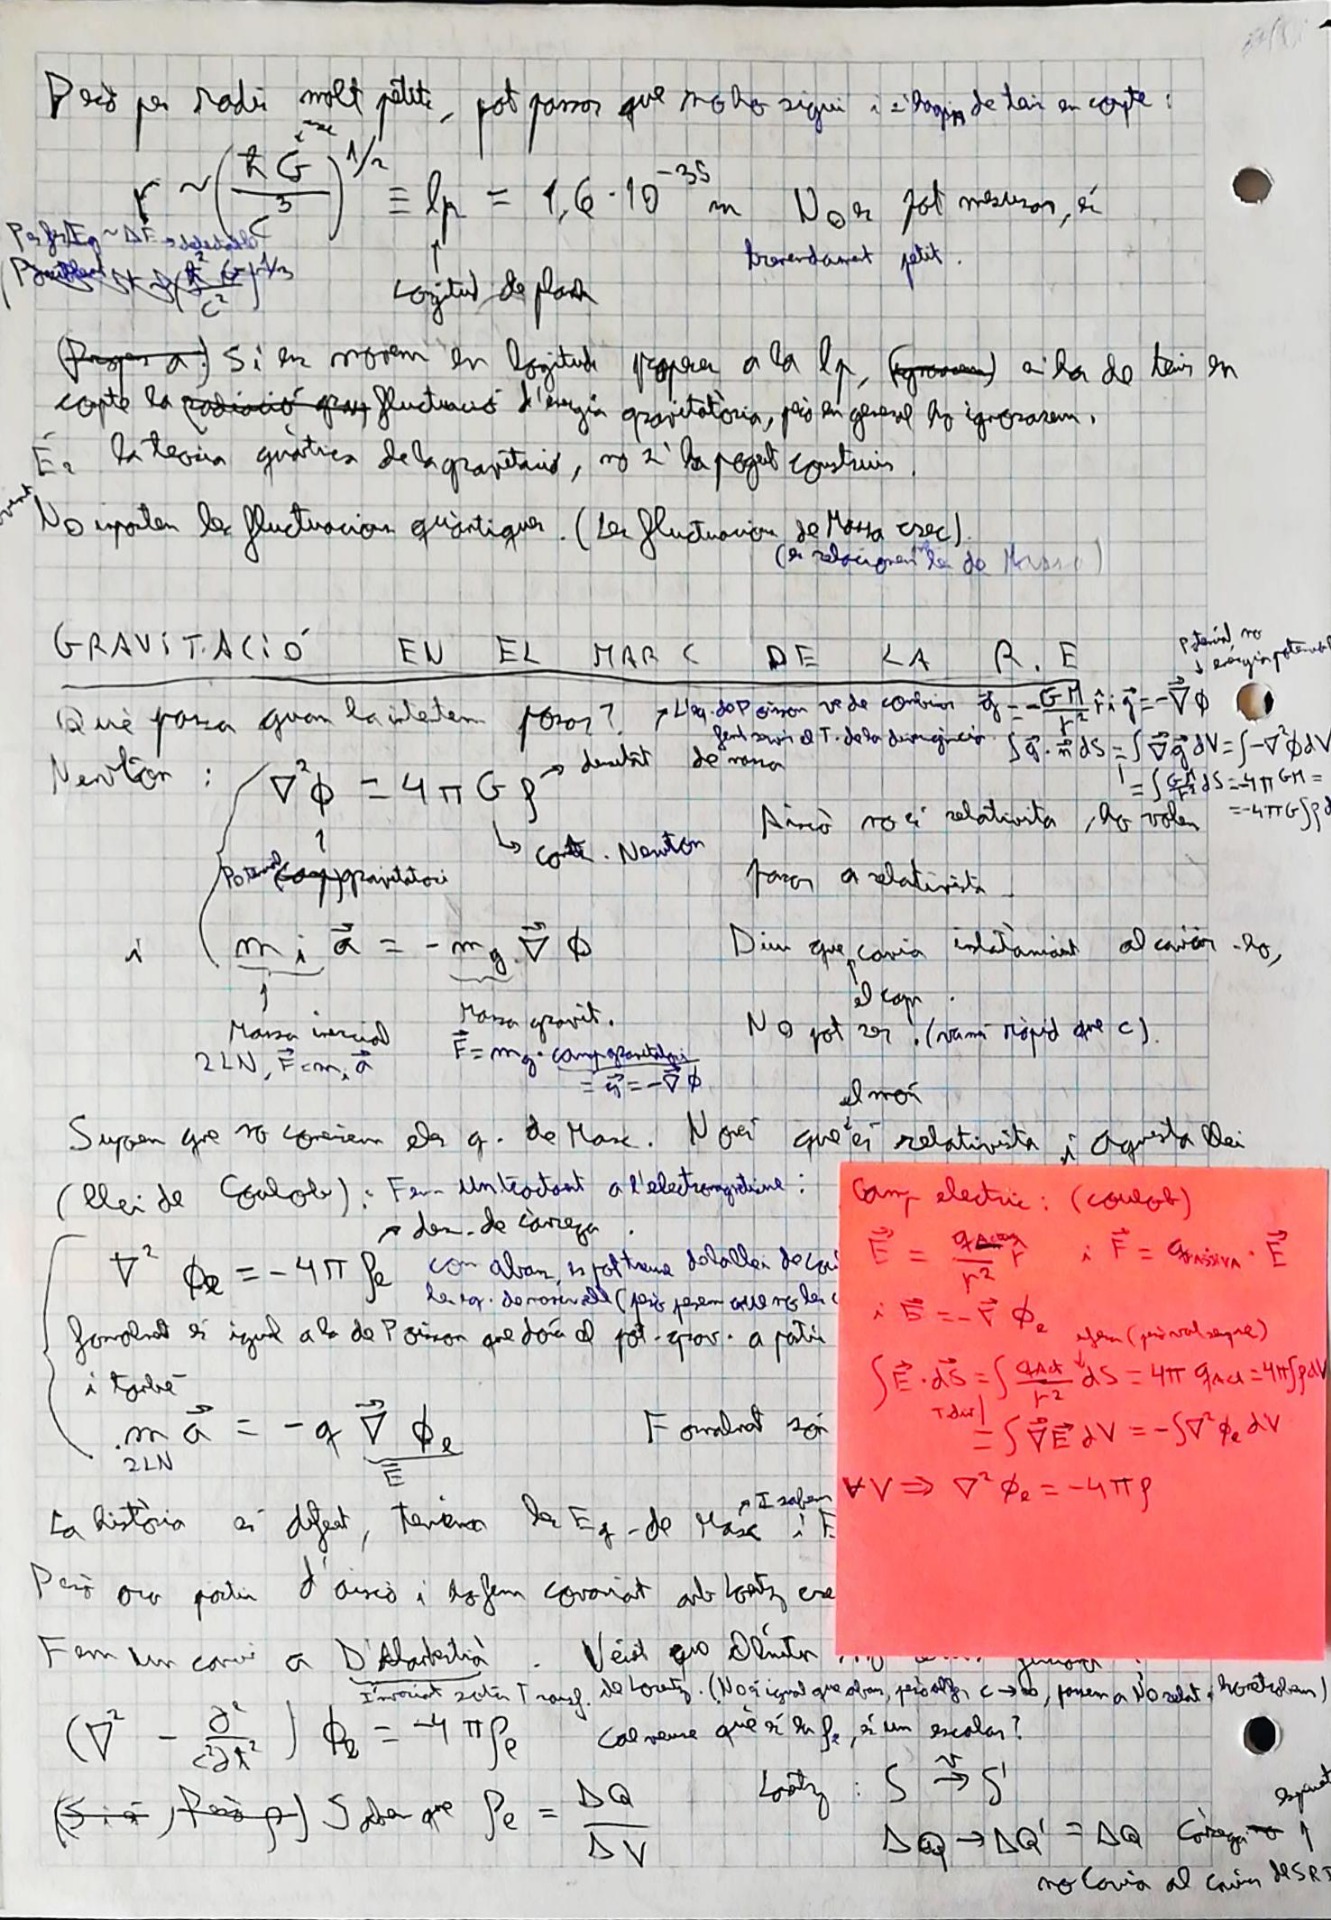 Però per radis molt petits, pot passar que no ho sigui i s'hagin de tenir en compte:
r ~ (ħG/c³)^1/2 ≡ lp = 1,6·10^-35 m No es pot mesurar, és
tremendament petit.
Longitud de planck
(Propers a) Si ens movem en longituds properes a la lp, (ignorarem) s'ha de tenir en
compte la radiació grav fluctuació d'energia gravitatòria, però en general ho ignorarem.
És la teoria quàntica de la gravitació, no s'ha pogut construir.
No importen les fluctuacions quàntiques. (Les fluctuacions de Massa crec).
(es relacionen les de Massa)
GRAVITACIÓ EN EL MARC DE LA R.E
potencial no
energia potencial
Què passa quan la intentem posar?
L'eq. de Poisson ve de combinar g⃗ = -GM/r² r̂ i g⃗ = -∇⃗ϕ
fent servir el T. de la divergència. ∫g⃗·n⃗ dS = ∫∇⃗g⃗ dV = ∫-∇²ϕdV
= ∫GM/r² dS = -4πGM =
= -4πG∫ρd
Newton: ∇²ϕ = 4πGρ → densitat de massa
↳ const. Newton
Potencial (camp) gravitatori
Això no és relativista, ho volem
passar a relativista.
i m_i a⃗ = -m_g ∇⃗ϕ
Diu que canvia instantàniament al canviar-ho,
el camp.
No pot ser! (va més ràpid que c).
Massa inercial
2LN, F⃗ = m_i a⃗
Massa gravit.
F⃗ = m_g · camp gravitatori
= g⃗ = -∇⃗ϕ
el món
Suposem que no coneixem els q. de Max. Només que és relativista i aquesta llei
(llei de Coulob): Fem un tractant a l'electromagnetisme:
→ den. de càrrega.
∇²ϕe = -4πρe com abans, es pot treure de la llei de
les eq. de maxwell (però pesem que no les
formalment és igual a la de Poisson que dóna el pot. grav. a partir
i també
m a⃗ = -q ∇⃗ϕe
2LN E⃗
Formalment són
La història és diferent, tenim les Eq. de Max i
I sabem
Però ara partim d'això i ho fem covariant amb Lorentz
Fem un canvi a D'Alambertià. Veient que
Invariant sota Transf. de Lorentz. (No és igual que abans, però al fer c→∞, passem a No relat.
(∇² - ∂²/c²∂t²) ϕe = -4πρe cal veure què és la ρe, és un escalar?
(Si és, Però ρ) Sabem que ρe = ΔQ/ΔV Lorentz: S →v S'
ΔQ → ΔQ' = ΔQ Càrrega
no Canvia al canviar de SRI
Camp electric: (coulob)
E⃗ = qActiva/r² r̂ i F⃗ = qPASSIVA · E⃗
i E⃗ = -∇⃗ϕe
esfera (però val sempre)
∫E⃗·dS⃗ = ∫qAct/r² dS = 4π qAct = 4π∫ρdV
T div| = ∫∇⃗E⃗ dV = -∫∇²ϕe dV
∀V ⇒ ∇²ϕe = -4πρ